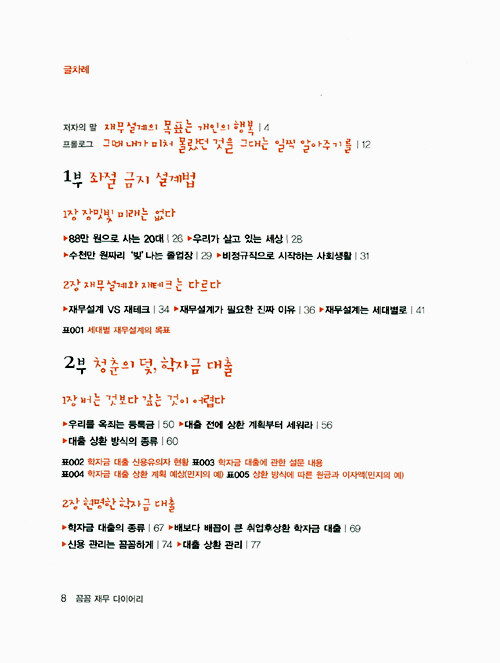 글차례
저자의 말 재무설계의 목표는 개인의 행복 | 4
프롤로그 그때 내가 미처 몰랐던 것을 그대는 일찍 알아주기를 | 12
1부 좌절 금지 설계법
1장 장밋빛 미래는 없다
▶88만 원으로 사는 20대 | 26 ▶우리가 살고 있는 세상 | 28
▶수천만 원짜리 ‘빚’ 나는 졸업장 | 29 ▶비정규직으로 시작하는 사회생활 | 31
2장 재무설계와 재테크는 다르다
▶재무설계 VS 재테크 | 34 ▶재무설계가 필요한 진짜 이유 | 36 ▶재무설계는 세대별로 | 41
표001 세대별 재무설계의 목표
2부 청춘의 덫, 학자금 대출
1장 버는 것보다 갚는 것이 어렵다
▶우리를 옥죄는 등록금 | 50 ▶대출 전에 상환 계획부터 세워라 | 56
▶대출 상환 방식의 종류 | 60
표002 학자금 대출 신용유의자 현황 표003 학자금 대출에 관한 설문 내용
표004 학자금 대출 상환 계획 예상(민지의 예) 표005 상환 방식에 따른 원금과 이자액(민지의 예)
2장 현명한 학자금 대출
▶학자금 대출의 종류 | 67 ▶배보다 배꼽이 큰 취업후상환 학자금 대출 | 69
▶신용 관리는 꼼꼼하게 | 74 ▶대출 상환 관리 | 77
8 꼼꼼 재무 다이어리